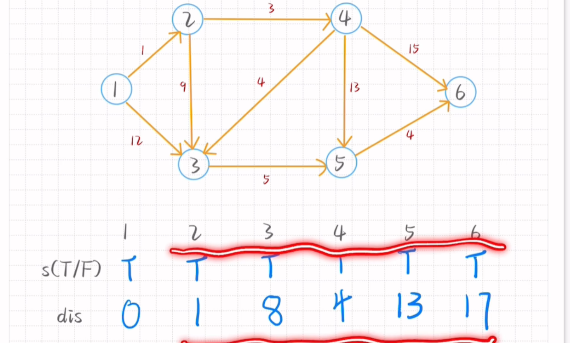 3
2
4
1
15
1
9
4
13
6
12
4
3
5
5
1 2 3 4 5 6
s(T/F) T T T T T T
dis 0 1 8 4 13 17